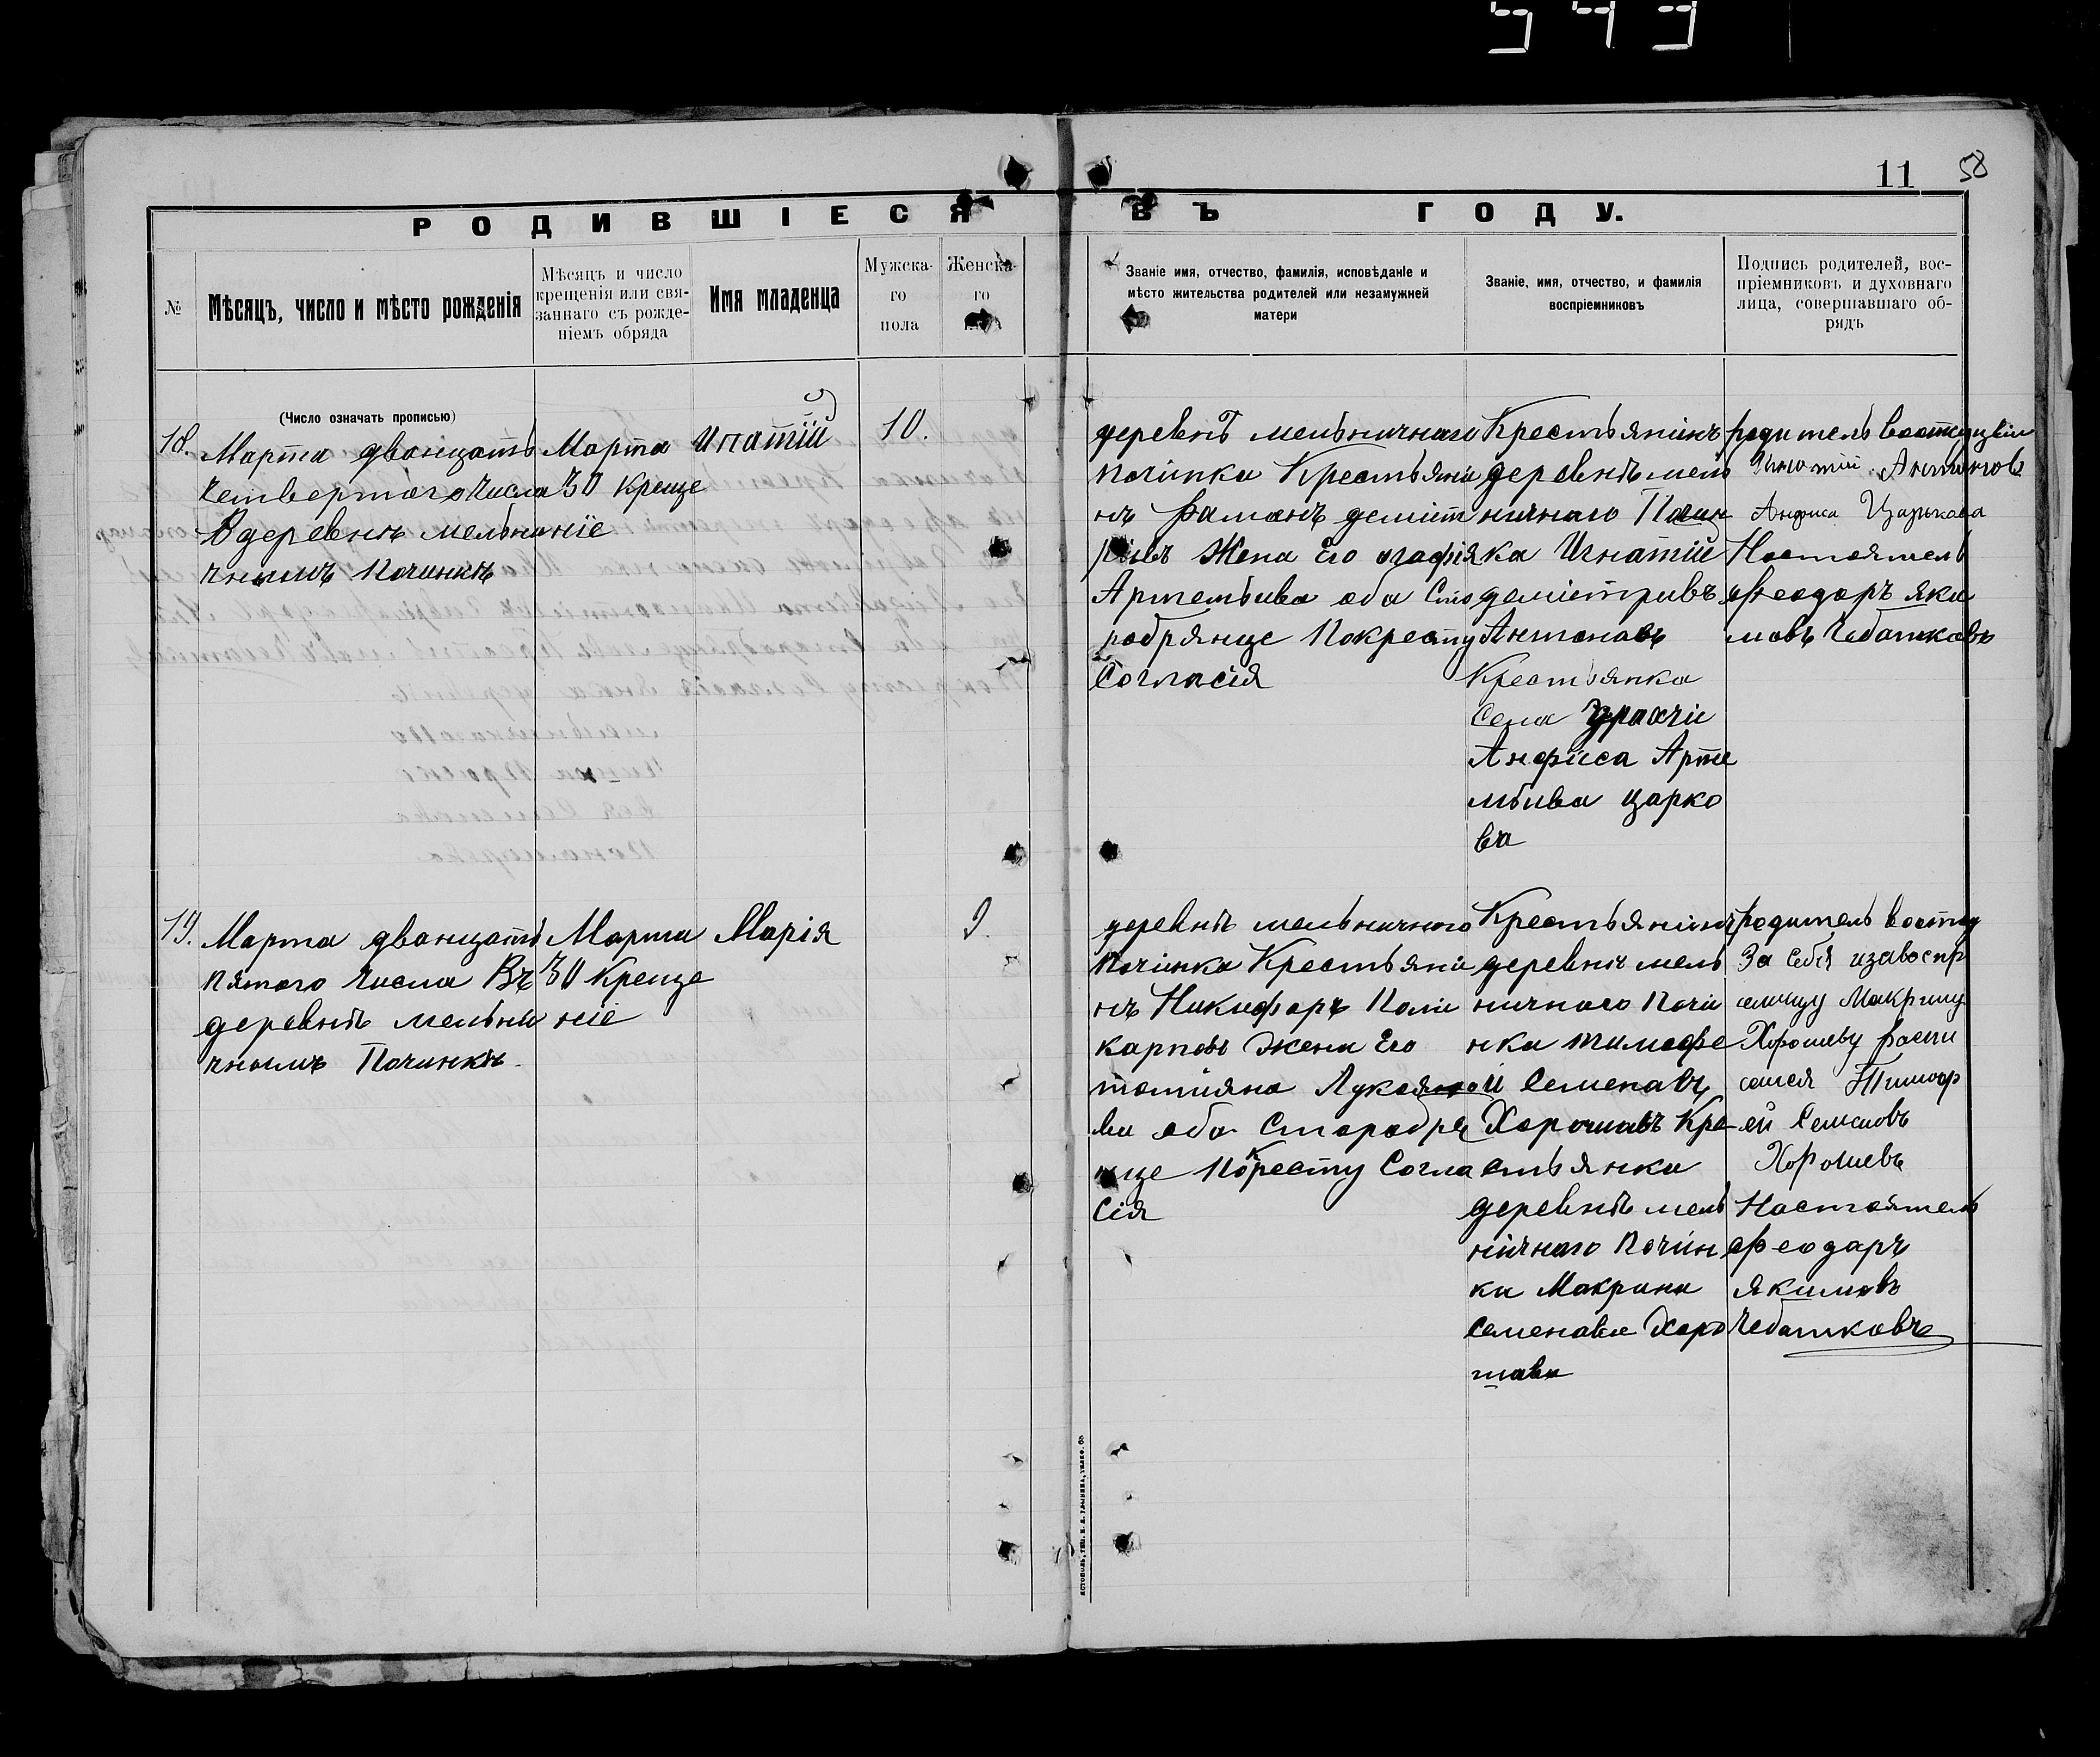 949
11 58
РОДИВШІЕСЯ ВЪ ГОДУ.
№
Мѣсяцъ, число и мѣсто рожденія
Мѣсяцъ и число
крещенія или свя-
заннаго съ рожде-
ніемъ обряда
Имя младенца
Мужска-
го
пола
Женска-
го
Званіе имя, отчество, фамилія, исповѣданіе и
мѣсто жительства родителей или незамужней
матери
Званіе, имя, отчество, и фамилія
воспріемниковъ
Подпись родителей, вос-
пріемниковъ и духовнаго
лица, совершавшаго об-
рядъ
(Число означать прописью)
18.
Марта дванцать
четвертого числа
В деревнѣ мельни
чномъ починкѣ
Марта
30 Креще
ніе
Ипатій
10.
деревнѣ мельничнаго
починка Крестьяни
нъ Раманъ деміт
рівъ Жена Его агафія
Артемьива оба Ста
робрянце Покресту
Согласія
Крестьянинъ
деревнѣ мель
ничнаго Почин
ка Игнатій
деміитривъ
Антонавъ
Крестьянка
Села
Анфіиса Арте
мьива царко
ва
родитель
Игнатій Антоновъ
Анфиса Царькова
Настоятель
Феодоръ яки
мовъ Чебатковъ
19.
Марта дванцать
пятого числа Въ
деревнѣ мельни
чномъ Починкѣ.
Марта
30 Креще
ніе
Марія
9.
деревнѣ мельничного
починка Крестьяни
нъ Никифоръ Поли
карповъ Жена Его
татияна Лукоя
ва оба Старобре
нце Покресту Согла
сія
Крестьянинъ
деревнѣ мель
ничного Почи
нка тимофе
й Семенавъ
Хорошавъ Кре
стьянка
деревнѣ мель
нічнаго почин
ка Макрина
Семенавна Харо
шава
родитель
За себя изавоспр
емницу Макрину
Хорошеву роспи
сался Тимоф
ей Семеновъ
Хорошевъ
Настоятель
Феодаръ
якимовъ
Чебатковъ